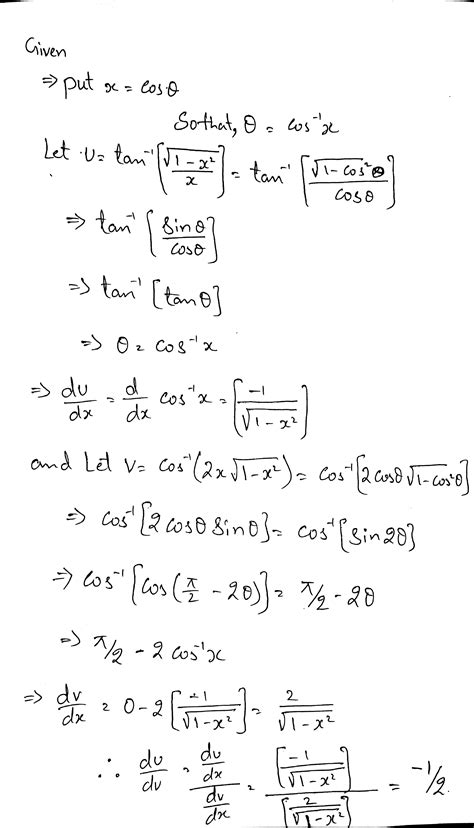 Given
⇒ put x = cosθ
So that, θ = cos⁻¹x
Let u = tan⁻¹[√(1-x²)/x] = tan⁻¹[√(1-cos²θ)/cosθ]
⇒ tan⁻¹[sinθ/cosθ]
⇒ tan⁻¹[tanθ]
⇒ θ = cos⁻¹x
⇒ du/dx = d/dx cos⁻¹x = [-1/√(1-x²)]
and Let V = cos⁻¹(2x√(1-x²)) = cos⁻¹[2cosθ√(1-cos²θ)]
⇒ cos⁻¹[2cosθ sinθ] = cos⁻¹[sin2θ]
⇒ cos⁻¹[cos(π/2 - 2θ)] = π/2 - 2θ
⇒ π/2 - 2cos⁻¹x
⇒ dv/dx = 0-2[-1/√(1-x²)] = 2/√(1-x²)
∴ du/dv = (du/dx)/(dv/dx) = [-1/√(1-x²)]/[2/√(1-x²)] = -1/2.